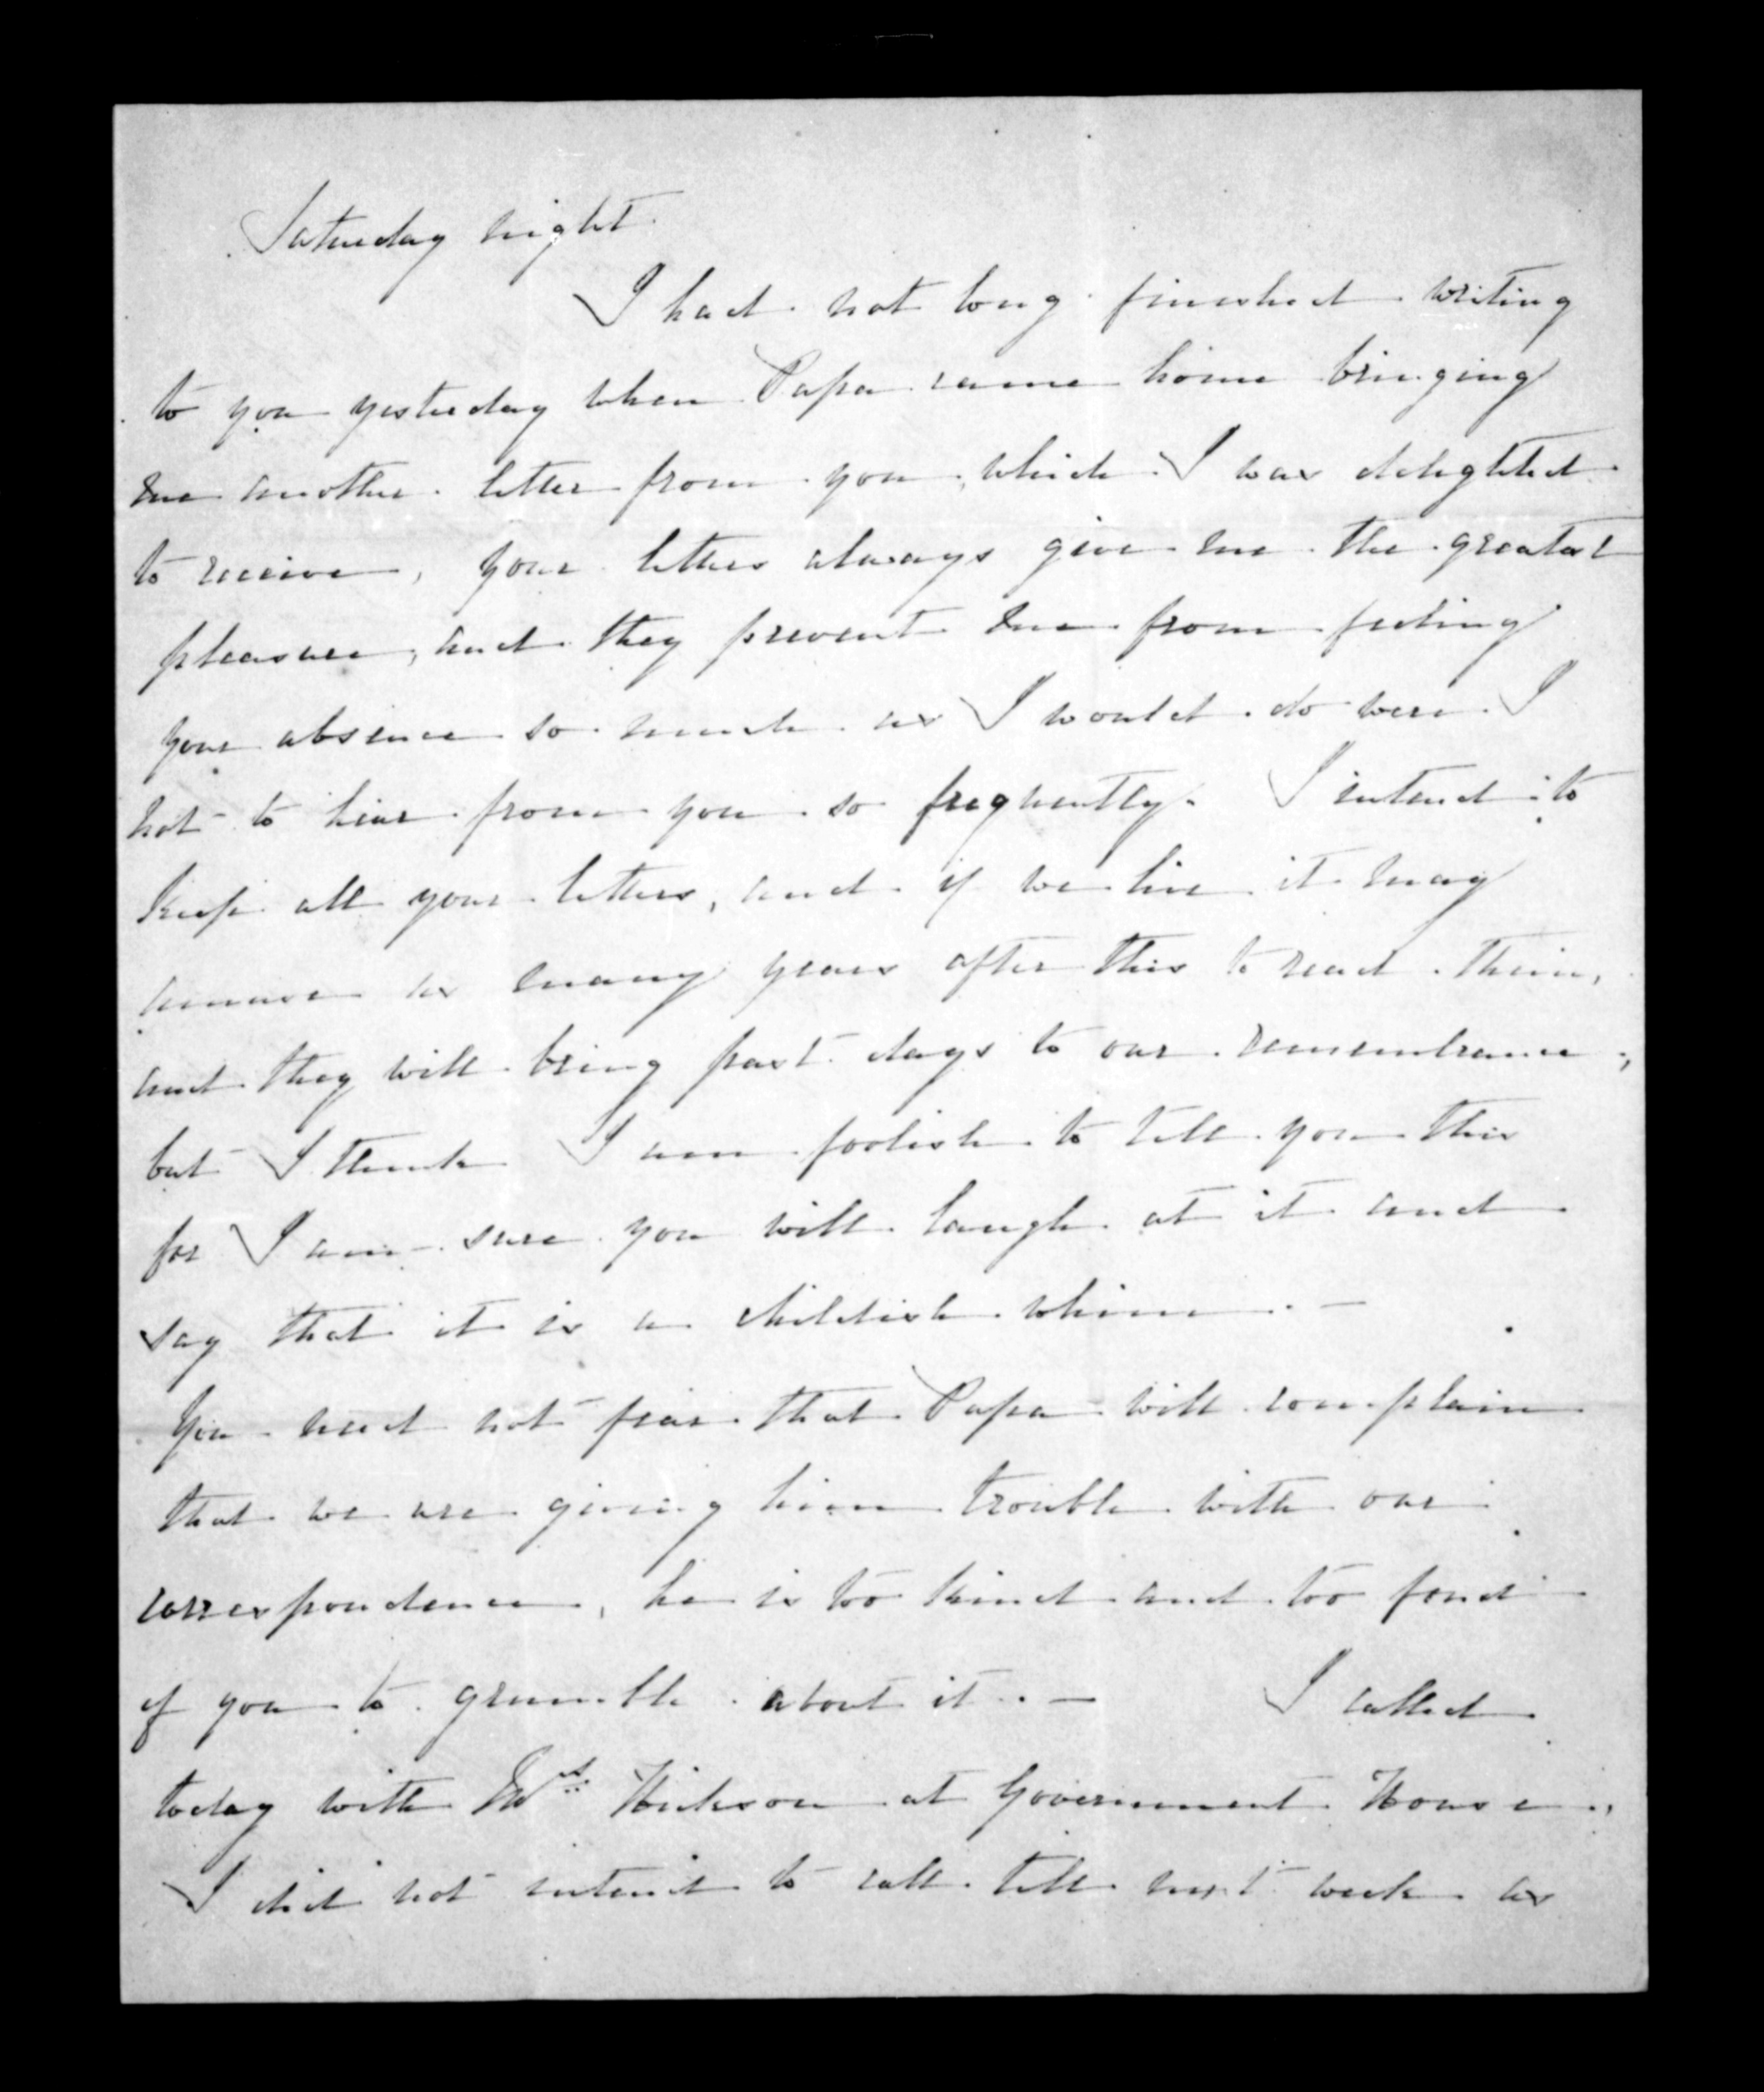 Saturday night.
I had not long finished writing
to you yesterday when Papa came home bringing
me another letter from you, which I was delighted
to receive, your letters always give me the greatest
pleasure, and they prevent me from feeling
your absence so much as I would do were I
not to hear from you so frequently. I intend to
keep all your letters, and if we live it may
amuse us many years after this to read them,
and they will bring past days to our remembrance,
but I think I am foolish to tell you this
for I am sure you will laugh at it and
say that it is a childish whim. —
You need not fear that Papa will complain
that we are giving him trouble with our
correspondence, he is too kind and too fond
of you to grumble about it. — I called
today with Mrs Hickson at Government House,
I did not intend to call till next week as